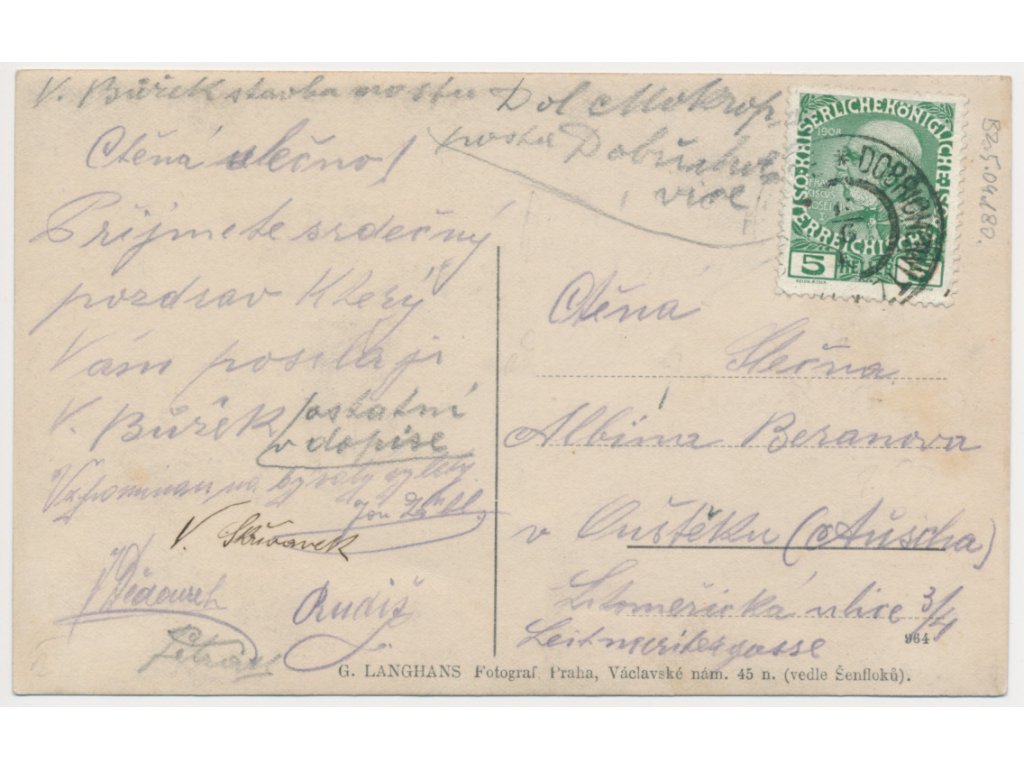 V. Bůřek stavba mostu
Dol Mokrop
posta Dobřicho
vice
Ctěná slečno!
Přijmete srdečný
pozdrav Který
Vám posílají
V. Bůřek
ostatní
v dopise
Vzpomínám na bývalý výlety
Jan
V. Skřivanek
Rudiš
KAISERLICHE KÖNIGLICHE
1908
ÖSTERREICHISCHE
5
DOBŘICHOVICE
Ctěná
Slečna
Albína Beranova
v Ouštěku (Auscha)
Litoměřická ulice 3/4
Leitmeritergasse
964
G. LANGHANS Fotograf Praha, Václavské nám. 45 n. (vedle Šenfloků).